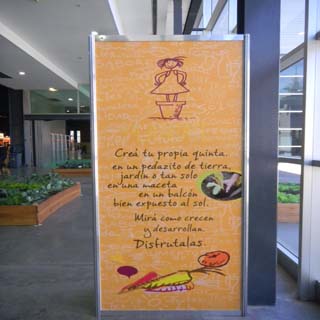 Creá tu propia quinta.
en un pedazito de tierra,
jardín o tan solo
en una maceta
en un balcón
bien expuesto al sol.
Mirá como crecen
y desarrollan.
Disfrutalas